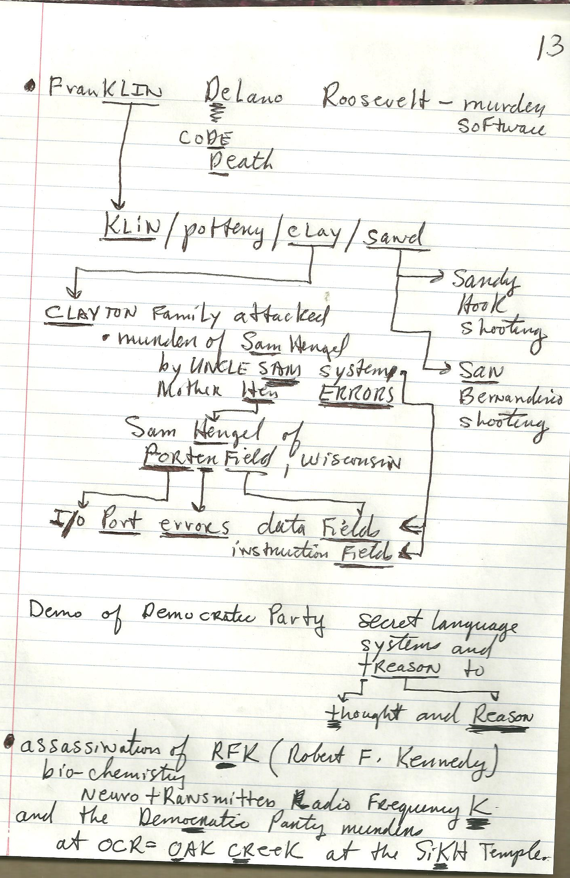 13
• FranKLIN DeLano Roosevelt - murder
software
CODE
Death
KLIN/pottery/clay/sand
Sandy
Hook
shooting
CLAYTON Family attacked
• murder of Sam Hengel
by UNCLE SAM system
Mother Hen ERRORS
SAN
Bernardino
shooting
Sam Hengel of
PORTERField, Wisconsin
I/O Port errors data Field
instruction Field
Demo of Democratic Party secret language
systems and
tReason to
thought and Reason
• assassination of RFK (Robert F. Kennedy)
bio-chemistry
Neuro tRansmitter Radio Frequency K
and the Democratic Party murders
at OCR= OAK CReeK at the SiKH Temple.